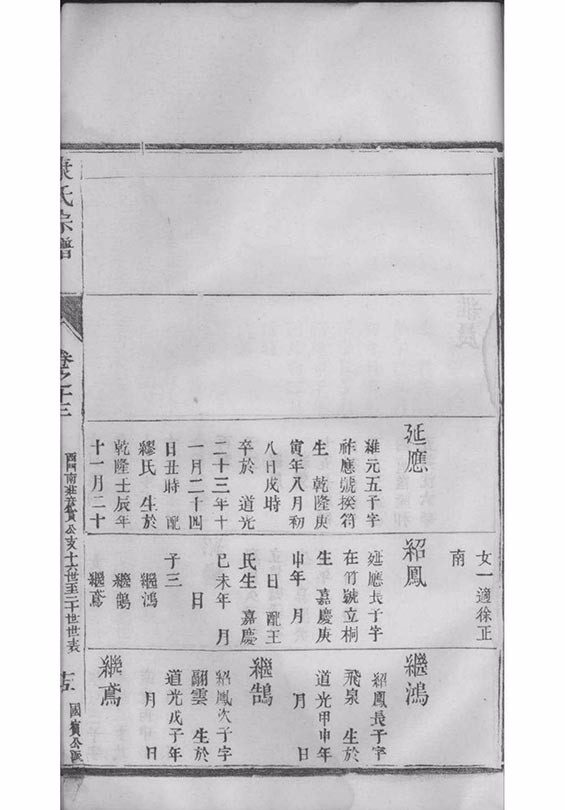 女一適徐正
南
延應
維元五子字
祚應號揆符
生 乾隆庚
寅年八月初
八日戌時
卒於 道光
二十三年十
一月二十四
日丑時 配
繆氏 生於
乾隆壬辰年
十一月二十
紹鳳
延應長子字
在竹號立桐
生 嘉慶庚
申年 月
日 配王
氏生 嘉慶
己未年 月
日
子三
繼鴻
繼鵠
繼鳶
繼鴻
紹鳳長子字
飛泉 生於
道光甲申年
月 日
繼鵠
紹鳳次子字
翮雲 生於
道光戊子年
月 日
繼鳶
氏宗譜
卷之十三
公支十六世至二十世世表
國賓公區